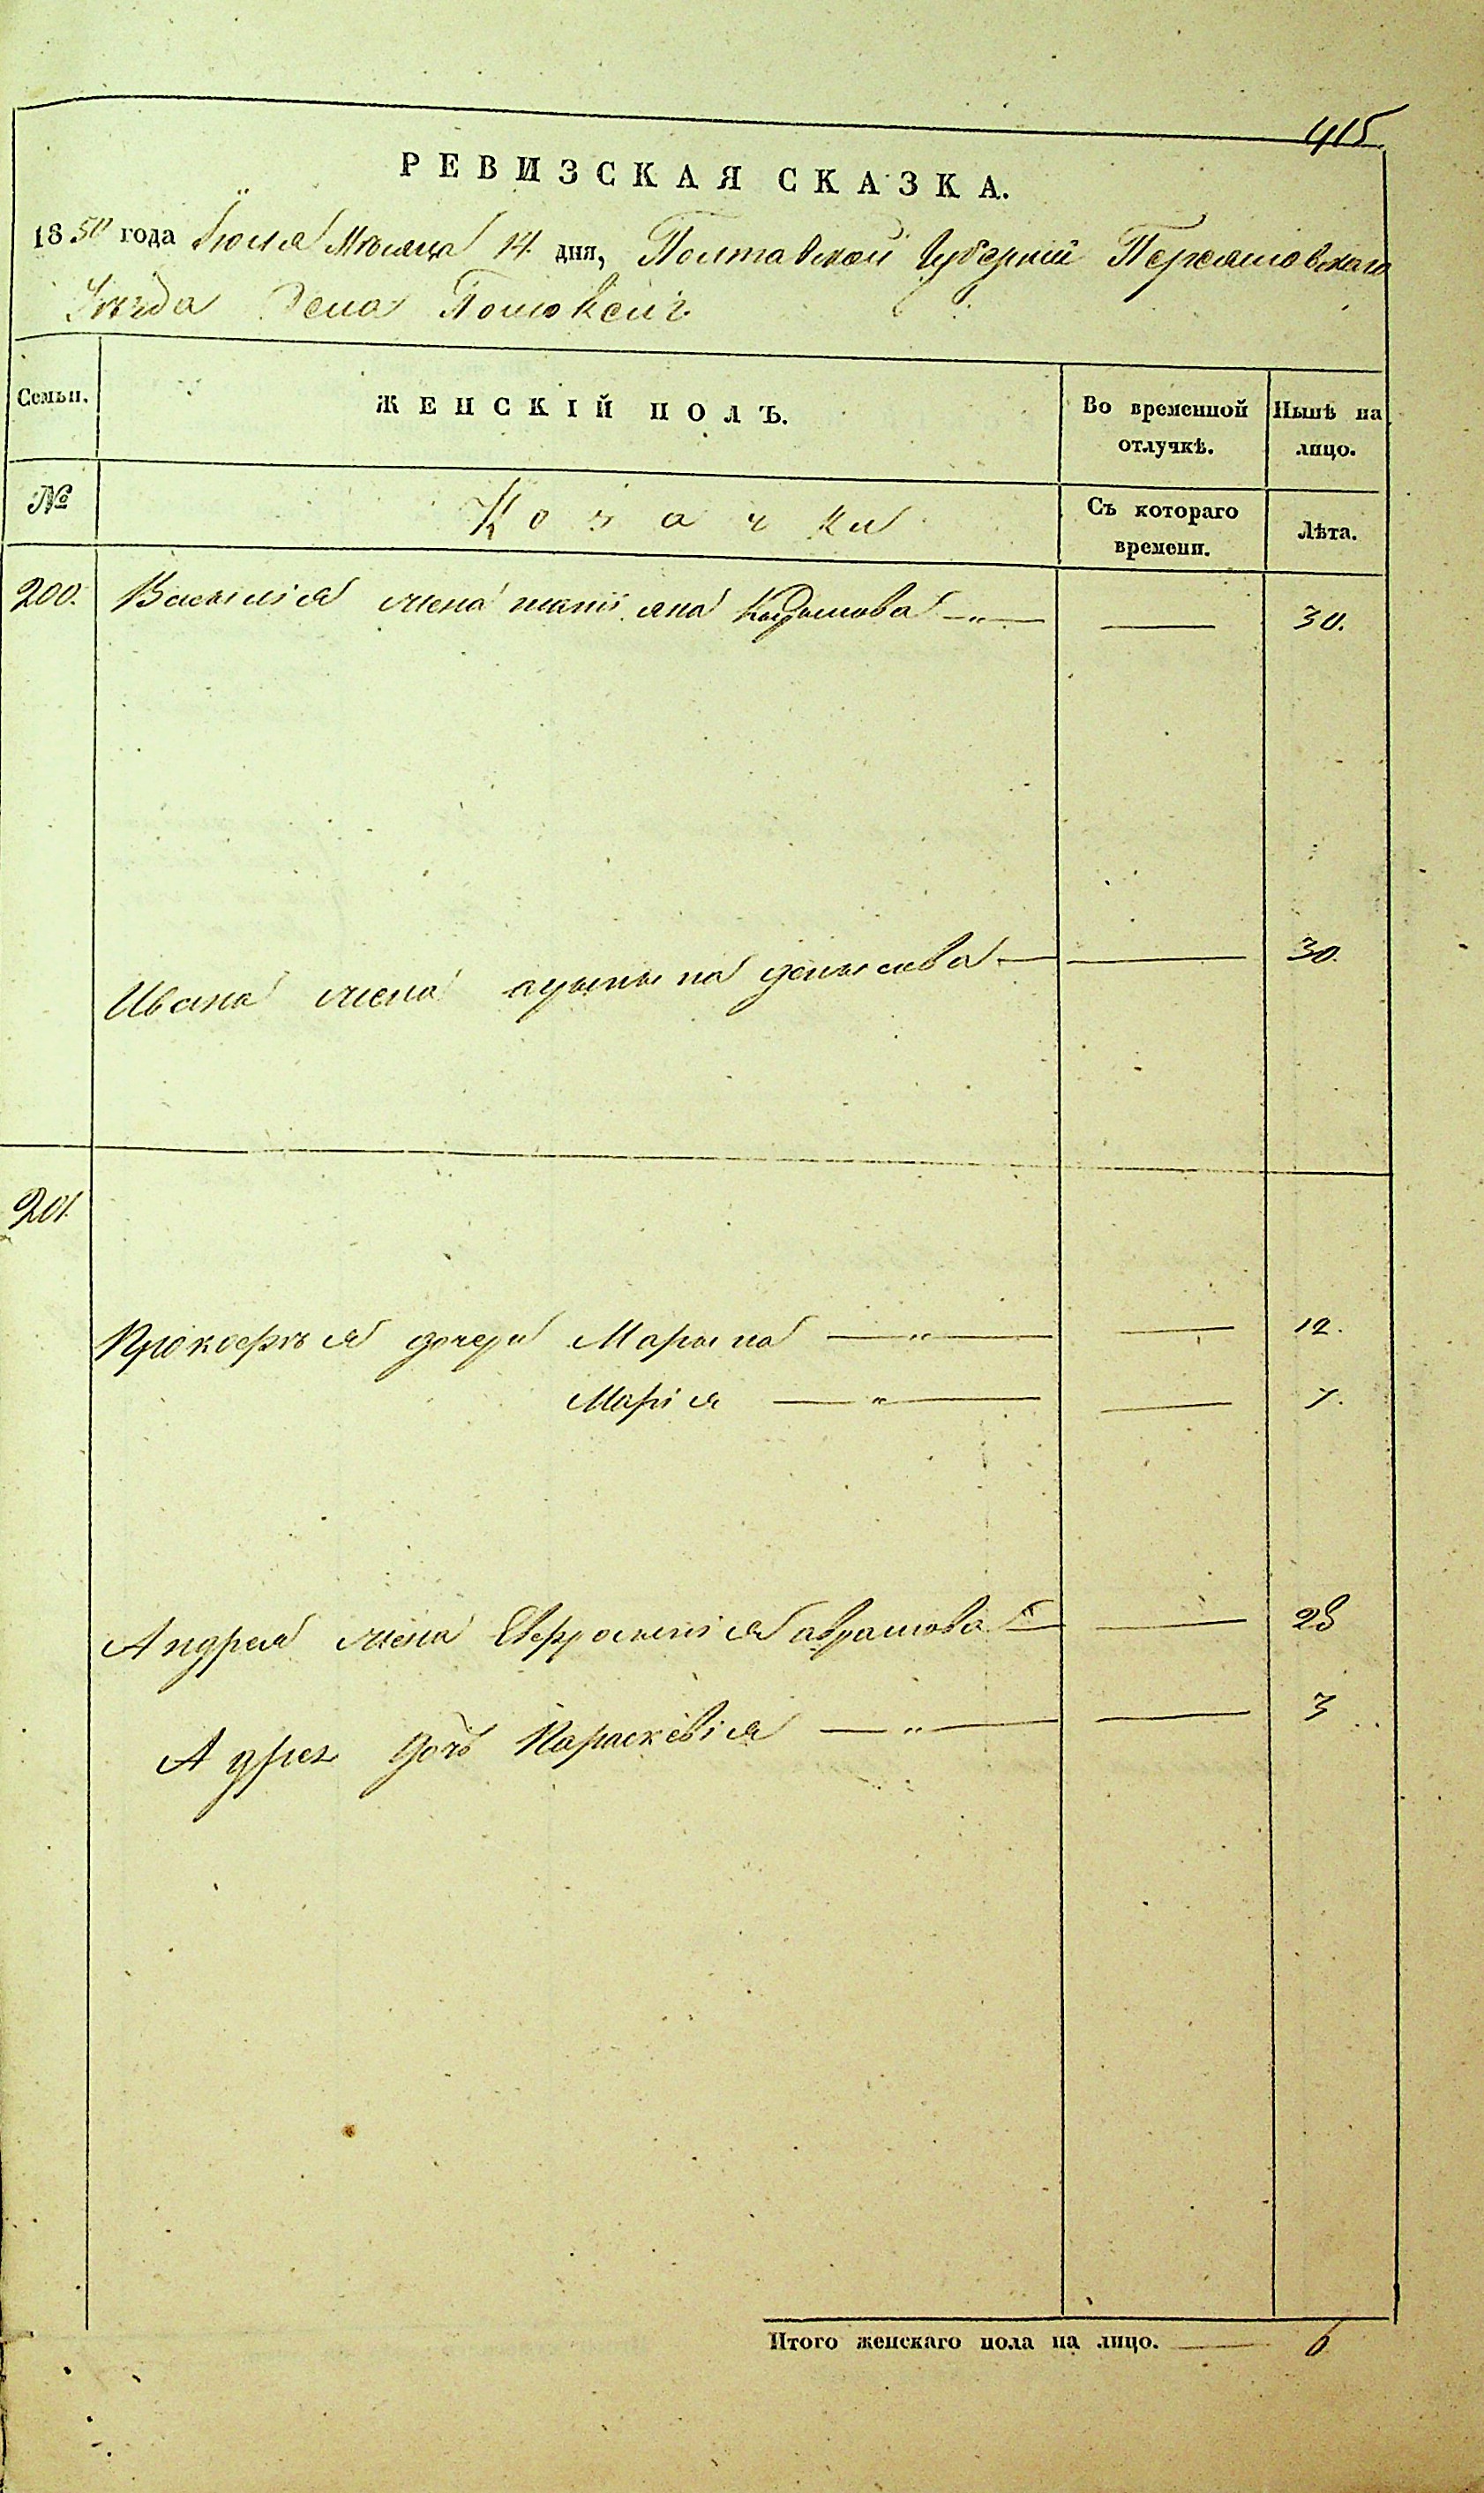 415.
РЕВИЗСКАЯ СКАЗКА.
1850 года Іюля Мѣсяца 14. дня, Полтавской Губерніи Переяславскаго
Уѣзда Села
Семьи. ЖЕНСКІЙ ПОЛЪ. Во временной отлучкѣ. Нынѣ на лицо.
№ Козачки Съ котораго времени. Лѣта.
200. Василія жена Кидзимова 30.
Ивана жена 30.
201.
Прокофія дочери Марына 12.
Марія 7.
Андрея жена Евфросинія 28
дочь Параскевія 3
Итого женскаго пола на лицо. 6